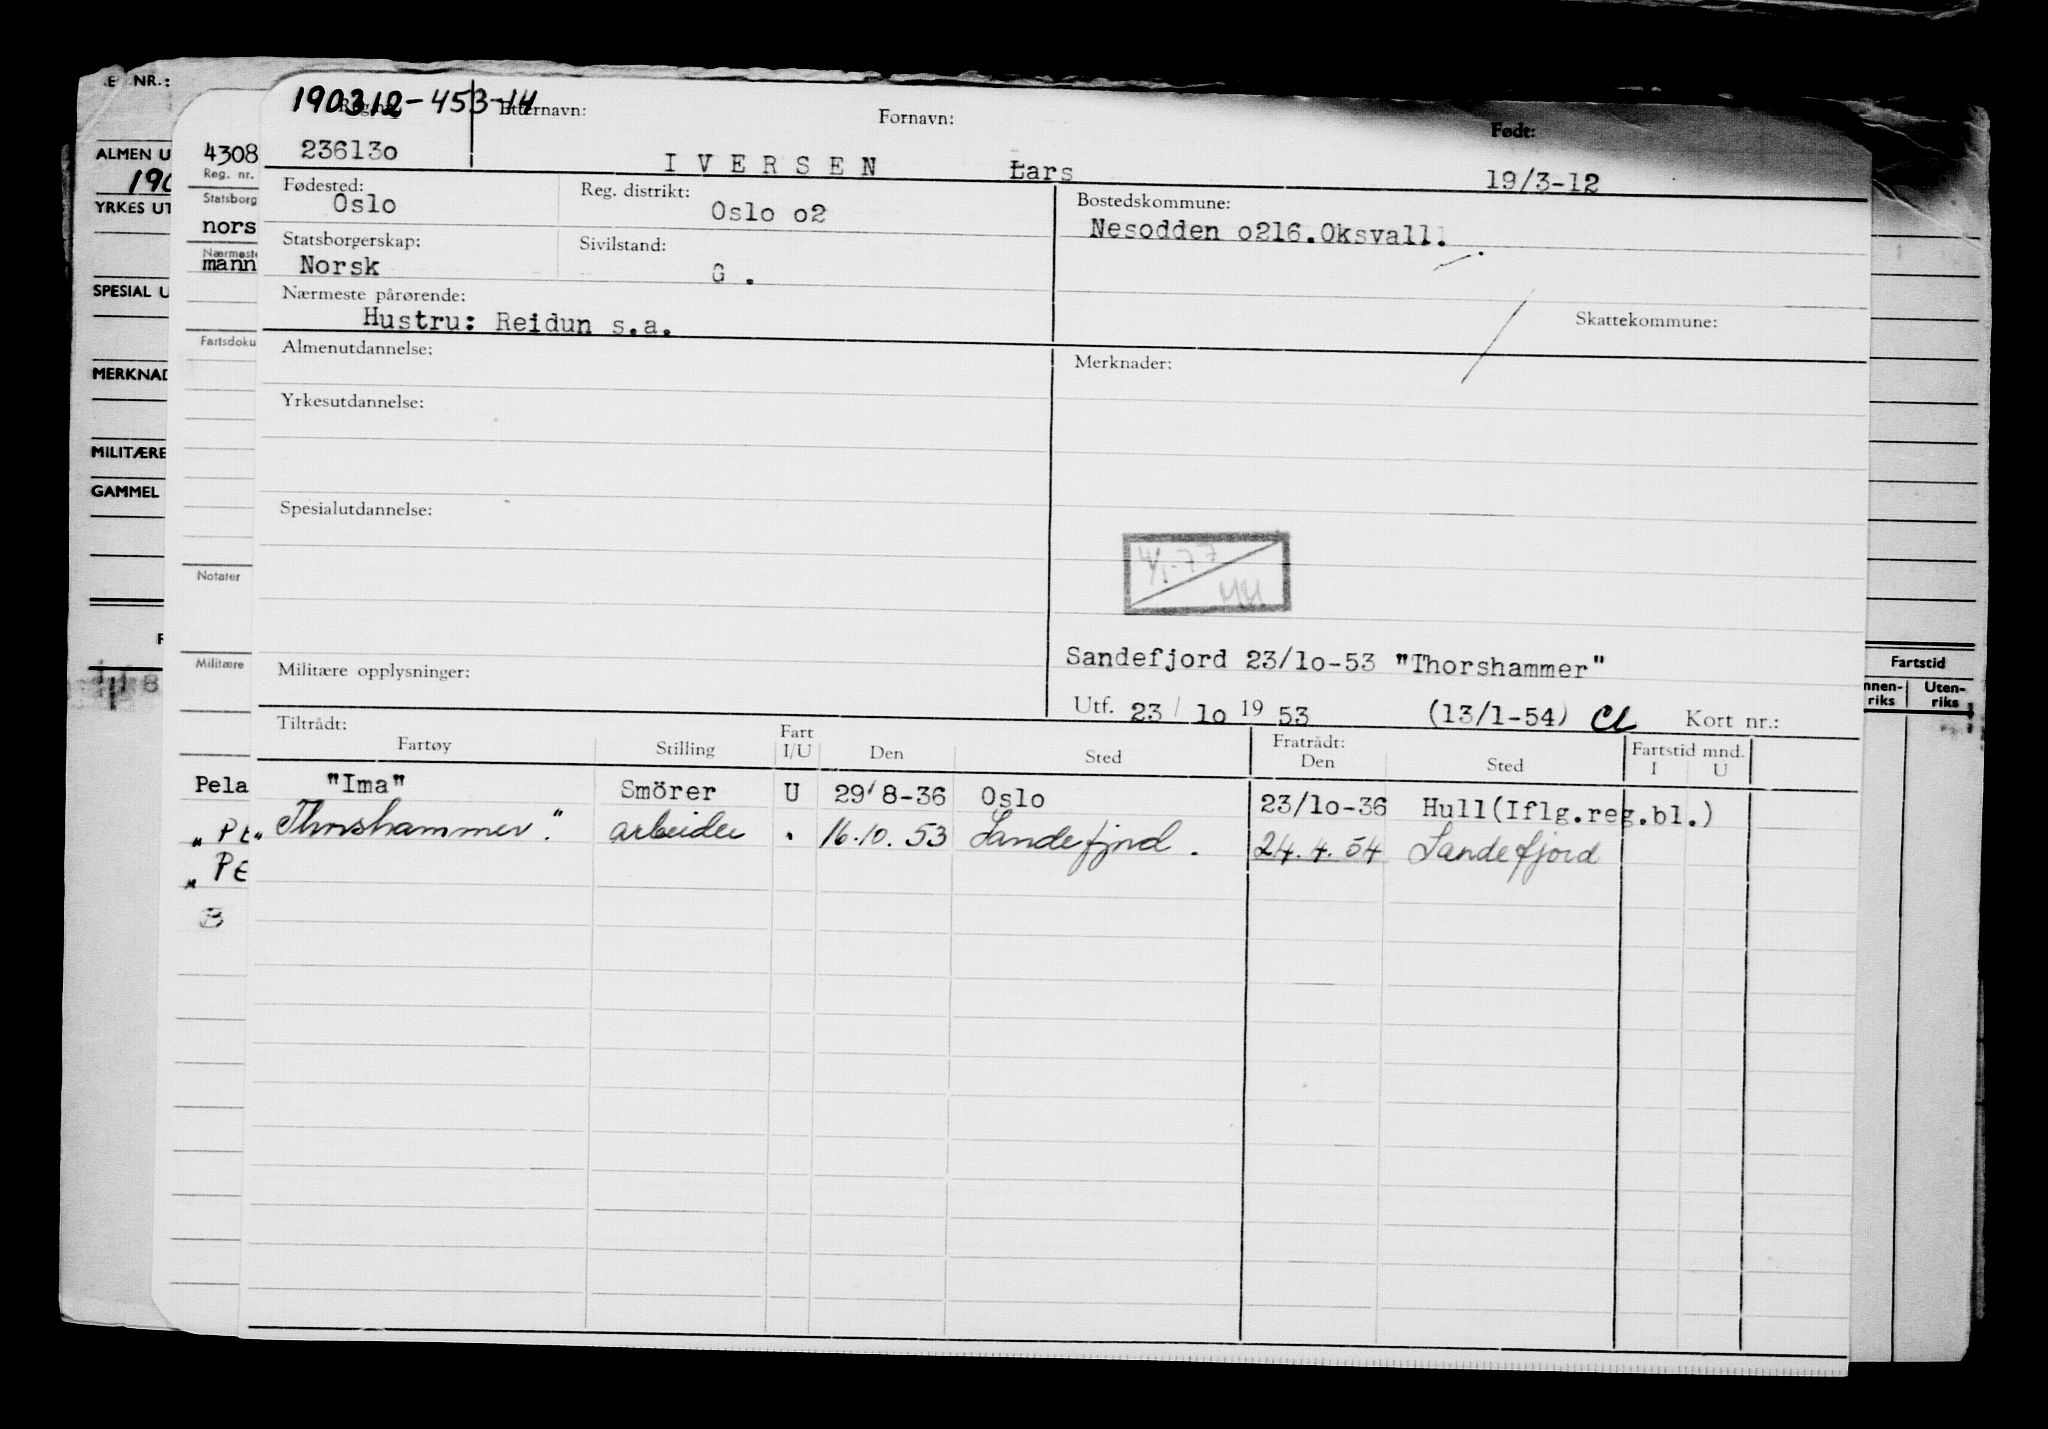 190312-453-14
Reg. nr. Etternavn: Fornavn: Født:
236130 I V E R S E N Lars 19/3-12
Fødested: Reg. distrikt: Bostedskommune:
Oslo Oslo o2 Nesodden o216.Oksvall.
Statsborgerskap: Sivilstand:
Norsk G .
Nærmeste pårørende: Skattekommune:
Hustru: Reidun s.a.
Almenutdannelse: Merknader:
Yrkesutdannelse:
Spesialutdannelse:
4/1-77
Sandefjord 23/1o-53 "Thorshammer"
Militære opplysninger:
Utf. 23/1o 19 53 (13/1-54) Kort nr.:
Tiltrådt: Fratrådt: Fartstid mnd.
Fartøy Stilling Fart I/U Den Sted Den Sted I U
"Ima" Smörer U 29/8-36 Oslo 23/1o-36 Hull(Iflg.reg.bl.)
"Thorshammer". arbeider " 16.10.53 Sandefjord. 24.4.54 Sandefjord
NR.:
ALMEN U
190
YRKES UT
SPESIAL U
MERKNAD
MILITÆRE
GAMMEL
4308
Reg. nr.
Statsborg
nors
Nærmeste
mann
Fartsdoku
Notater
Militære
Pela
" PE
" PE
B
Fartstid
nnen-riks Uten-riks